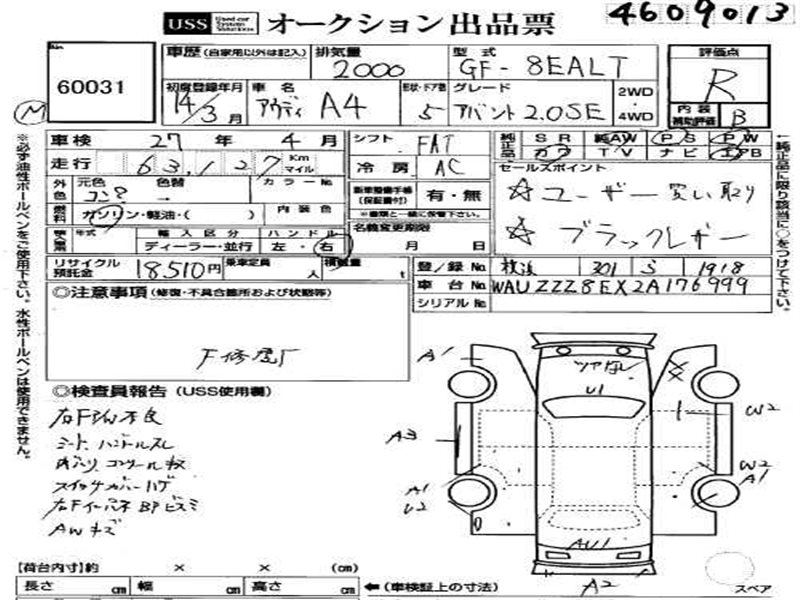 USS Used car System Solutions オークション出品票
4609013
No. 60031
車歴 (自家用以外は記入)
排気量 2000
型式 GF-8EALT
評価点 R
初度登録年月 14/3月
車名 アウディ A4
形状・ドア数 5
グレード アバント2.0SE
2WD・4WD
内装補助評価 B
M
車検 27年 4月
シフト FAT
純正品 SR 純AW PS PW
カワ TV ナビ エアB
走行 63,127 Km マイル
冷房 AC
セールスポイント
外色 元色 色替 カラーNo.
コン?→
新車整備手帳(保証書付) 有・無
※書類と一緒に保管下さい。
☆ユーザー買い取り
燃料 ガソリン・軽油・( ) 内装色
名義変更期限 月 日
☆ブラックレザー
年式 輸入区分 ハンドル
ディーラー・並行 左・右
リサイクル預託金 18510円
乗車定員 人
積載量 t
登録No. 横浜 301 1918
車台No. WAUZZZ8EX2A176999
シリアルNo.
◎注意事項 (修復・不具合箇所および状態等)
F修復
◎検査員報告 (USS使用欄)
シート ハンドルスレ
コンソールキズ
スイッチカバーハゲ
AWキズ
A1
U1
W2
A3
A1
U2
W2
A1
AU1
A2
スペア
【荷台内寸】約 × × (cm)
長さ cm 幅 cm 高さ cm ←(車検証上の寸法)
※必ず油性ボールペンをご使用下さい。水性ボールペンは使用できません。
←純正品に限り該当に○をつけて下さい。